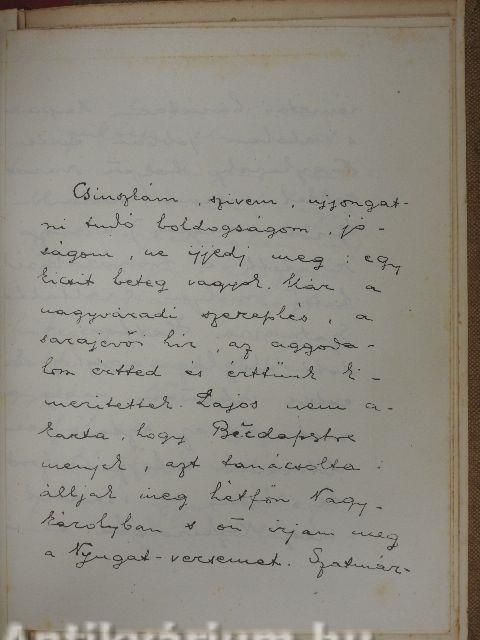 Csinszkám, szivem, ujjongat-
ni tudó boldogságom, jó-
ságom, ne ijjedj meg: egy
kicsit beteg vagyok. Már a
nagyváradi szereplés, a
sarajevói hir, az aggoda-
lom érted és érttünk ki-
merítettek. Lajos nem a-
karta, hogy
menjek, azt tanácsolta:
álljak meg hétfőn Nagy-
károlyban s ott irjam meg
a Nyugat-versemet. Szatmár-
Antikvárium.hu